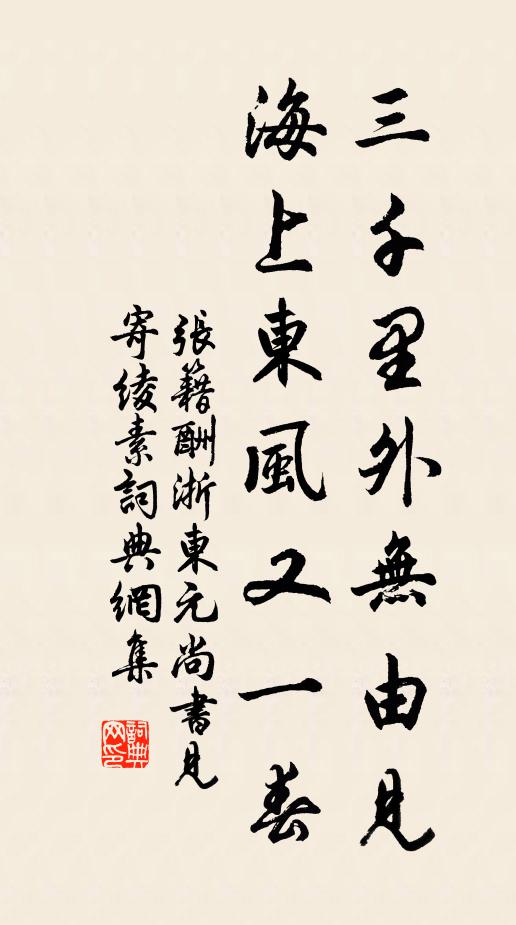 三千里外無由見
海上東風又一春
張籍酬浙東元尚書見
寄綾素詞典網集
詞典
网印